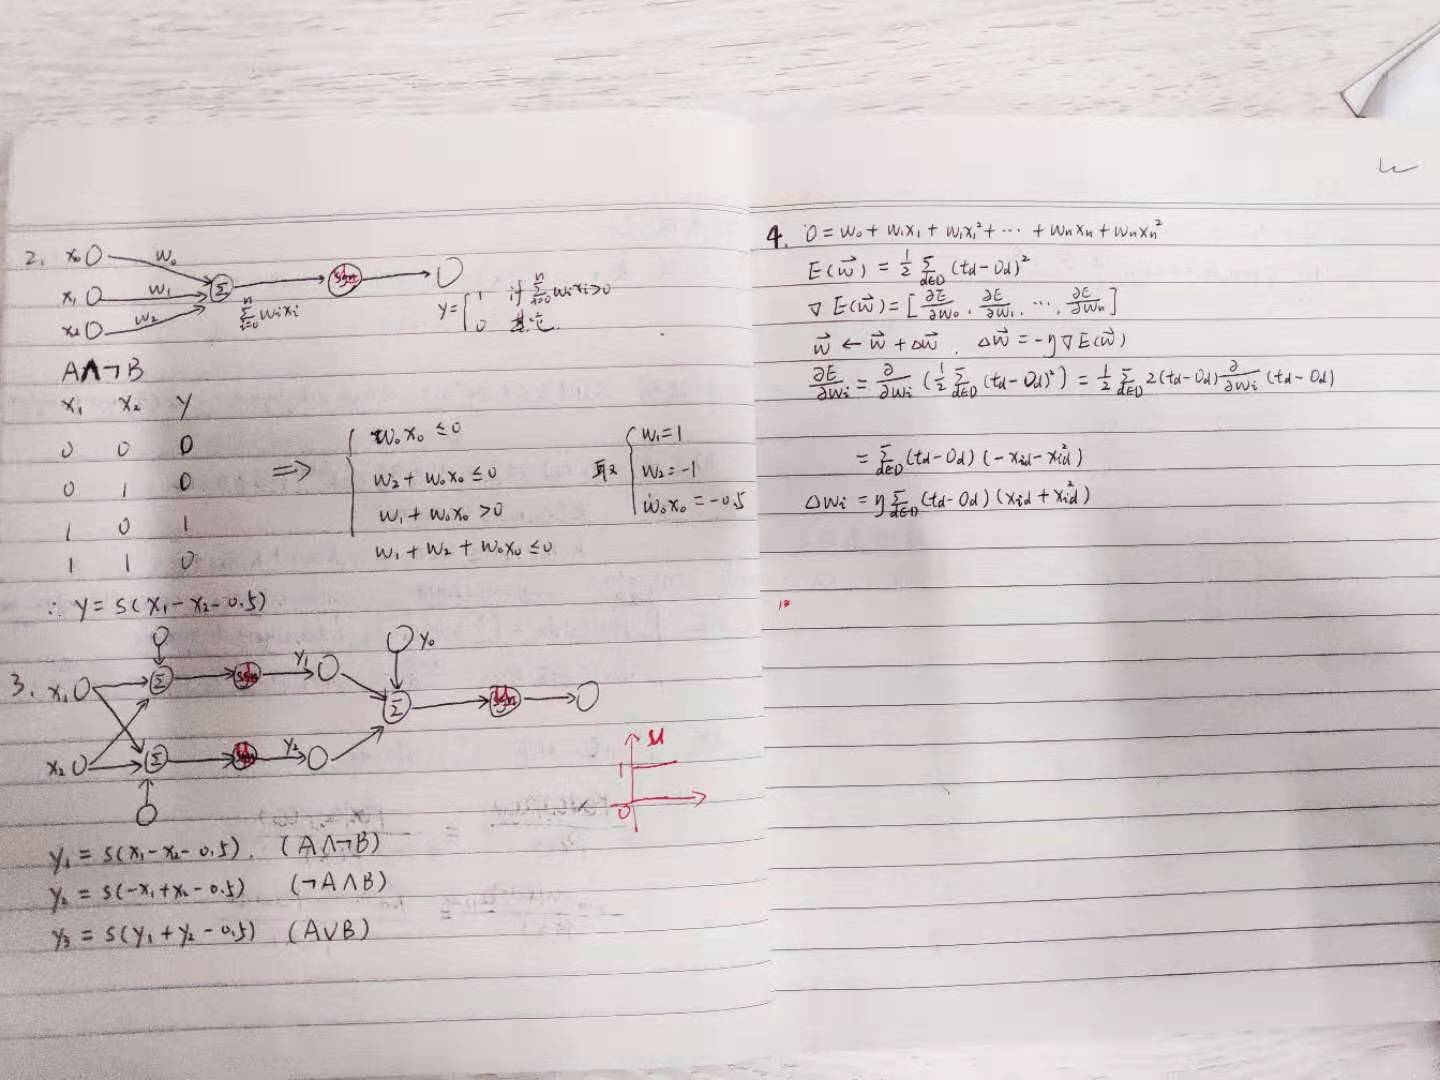 2. x₀ w₀
x₁ w₁ Σ sgn
x₂ w₂
\sum_{i=0}^{n} wᵢxᵢ
y = { 1 if \sum_{i=0}^{n} wᵢxᵢ>0
0 其它.
A∧¬B
x₁ x₂ y
0 0 0
0 1 0
1 0 1
1 1 0
⇒ { w₀x₀ ≤0
w₂+w₀x₀ ≤0
w₁+w₀x₀ >0
w₁+w₂+w₀x₀ ≤0
取 { w₁=1
w₂=-1
w₀x₀=-0.5
∴ y = s(x₁-x₂-0.5)
3. x₁ Σ sgn y₁ y₀
Σ sgn
x₂ Σ sgn y₂
y₁ = s(x₁-x₂-0.5). (A∧¬B)
y₂ = s(-x₁+x₂-0.5) (¬A∧B)
y₃ = s(y₁+y₂-0.5) (A∨B)
u
1
0
4. O = w₀+w₁x₁+w₁x₁²+⋯+wₙxₙ+wₙxₙ²
E(\vec{w}) = \frac{1}{2} \sum_{d∈D} (t_d-O_d)²
∇E(\vec{w}) = [\frac{∂E}{∂w₀}, \frac{∂E}{∂w₁}, ⋯, \frac{∂E}{∂wₙ}]
\vec{w} ← \vec{w}+Δ\vec{w}, Δ\vec{w} = -η∇E(\vec{w})
\frac{∂E}{∂wᵢ} = \frac{∂}{∂wᵢ} (\frac{1}{2} \sum_{d∈D} (t_d-O_d)²) = \frac{1}{2} \sum_{d∈D} 2(t_d-O_d) \frac{∂}{∂wᵢ} (t_d-O_d)
= \sum_{d∈D} (t_d-O_d)(-x_{id}-x_{id}²)
Δwᵢ = η \sum_{d∈D} (t_d-O_d)(x_{id}+x_{id}²)